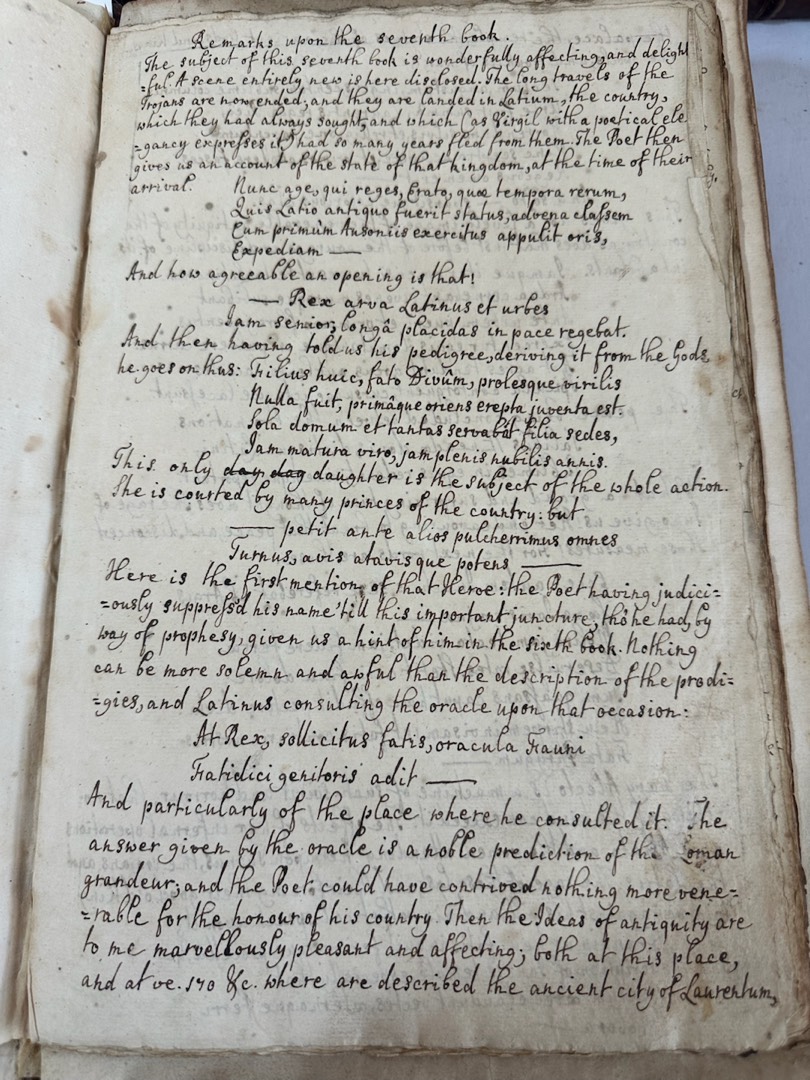 Remarks upon the seventh book.
The subject of this seventh book is wonderfully affecting, and delight
=ful. A scene entirely new is here disclosed. The long travels of the
Trojans are now ended; and they are landed in Latium, the country,
which they had always sought, and which (as Virgil with a poetical ele
=gancy expresses it) had so many years fled from them. The Poet then
gives us an account of the state of that kingdom, at the time of their
arrival. Nunc age, qui reges, Erato, quæ tempora rerum,
Quis Latio antiquo fuerit status, advena classem
Cum primùm Ausoniis exercitus appulit oris,
Expediam —
And how agreeable an opening is that!
— Rex arva Latinus et urbes
Iam senior, longâ placidas in pace regebat.
And then having told us his pedigree, deriving it from the Gods,
he goes on thus: Filius huic, fato Divûm, prolesque virilis
Nulla fuit, primâque oriens erepta juventa est.
Sola domum et tantas servabat filia sedes,
Iam matura viro, jam plenis nubilis annis.
This only day dag daughter is the subject of the whole action.
She is courted by many princes of the country: but
— petit ante alios pulcherrimus omnes
Turnus, avis atavisque potens —
Here is the first mention of that Heroe: the Poet having judici=
=ously suppress'd his name 'till this important juncture, tho' he had, by
way of prophesy, given us a hint of him in the sixth book. Nothing
can be more solemn and awful than the description of the prodi=
=gies, and Latinus consulting the oracle upon that occasion:
At Rex, sollicitus fatis, oracula Fauni
Fatidici genitoris adit —
And particularly of the place where he consulted it. The
answer given by the oracle is a noble prediction of the Roman
grandeur; and the Poet could have contrived nothing more vene=
=rable for the honour of his country. Then the Ideas of antiquity are
to me marvellously pleasant and affecting; both at this place,
and at ve. 170 &c. where are described the ancient city of Laurentum,